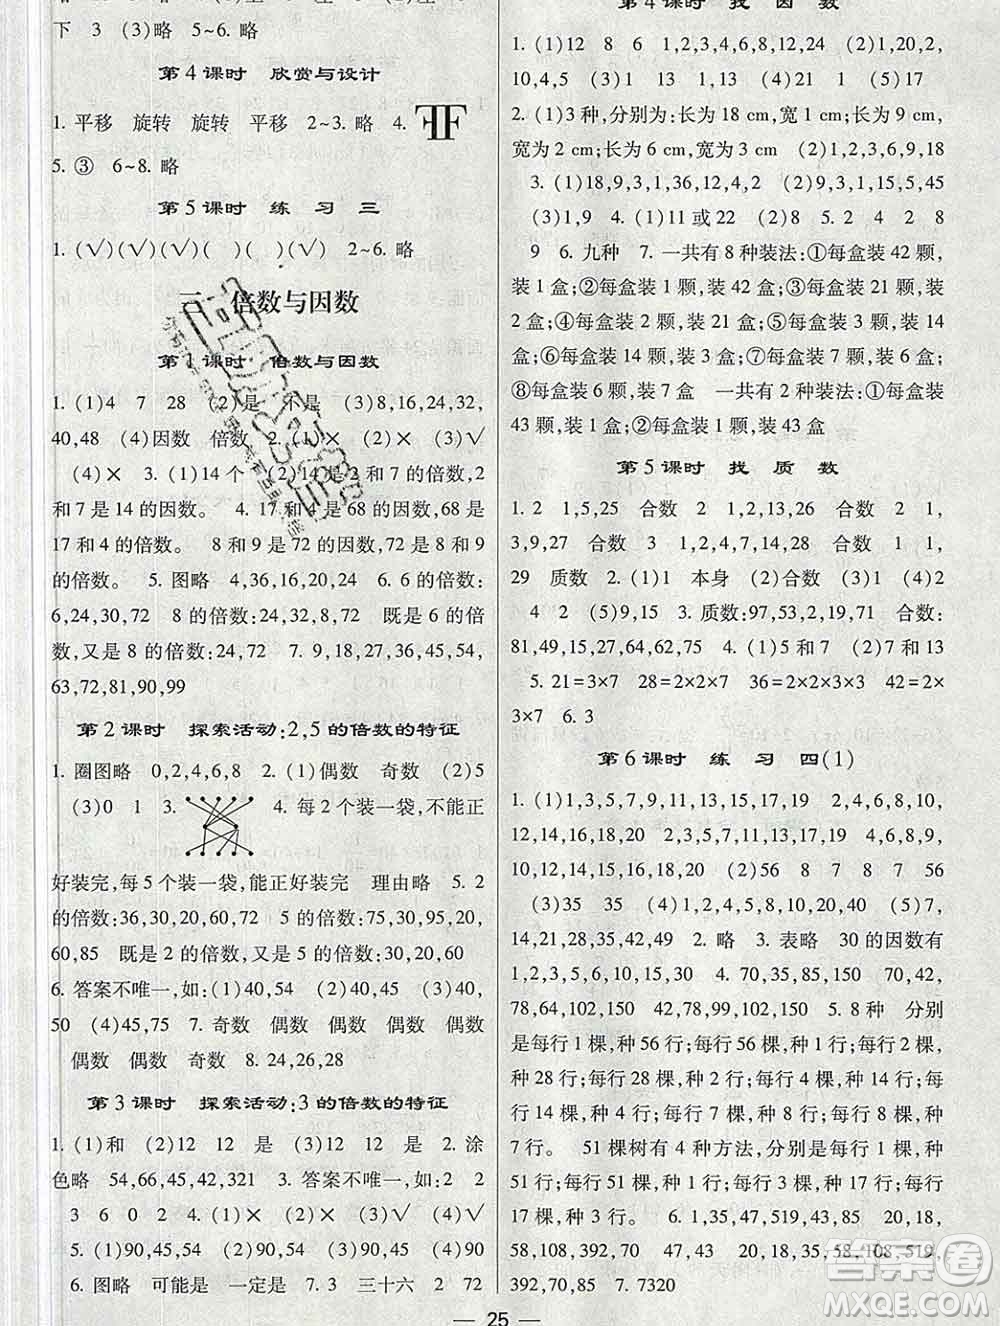 下 3 (3)略 5~6. 略
第 4 课时 欣赏与设计
1. 平移 旋转 旋转 平移 2~3. 略 4.
5. ③ 6~8. 略
第 5 课时 练 习 三
1. (√)(√)(√)( )( )(√) 2~6. 略
倍数与因数
第 1 课时 倍数与因数
1. (1)4 7 28 (2)是 不是 (3)8,16,24,32,
40,48 (4)因数 倍数 2. (1)× (2)× (3)√
(4)× 3. (1)14 个 (2)14 是 2 和 7 的倍数,2
和 7 是 14 的因数。 4. 17 和 4 是 68 的因数,68 是
17 和 4 的倍数。 8 和 9 是 72 的因数,72 是 8 和 9
的倍数。 5. 图略 4,36,16,20,24 6. 6 的倍数:
6,24,30,72 8 的倍数:24,8,32,72 既是 6 的倍
数,又是 8 的倍数:24,72 7. 9,18,27,36,45,54,
63,72,81,90,99
第 2 课时 探索活动:2,5 的倍数的特征
1. 圈图略 0,2,4,6,8 2. (1)偶数 奇数 (2)5
(3)0 1 3. 4. 每 2 个装一袋,不能正
好装完,每 5 个装一袋,能正好装完 理由略 5. 2
的倍数:36,30,20,60,72 5 的倍数:75,30,95,20,
60,85 既是 2 的倍数,又是 5 的倍数:30,20,60
6. 答案不唯一,如:(1)40,54 (2)40,45 (3)40,
50 (4)45,75 7. 奇数 偶数 偶数 偶数 偶数
偶数 偶数 奇数 8. 24,26,28
第 3 课时 探索活动:3 的倍数的特征
1. (1)和 (2)12 12 是 (3)12 12 是 2. 涂
色略 54,66,45,42,321 3. 答案不唯一,如:2 2
3 6 0 2 4. (1)× (2)× (3)√ (4)√
5. (1)90,45 (2)90,40 (3)90,45 (4)90
6. 图略 可能是 一定是 7. 3 三十六 2 72
第 4 课时 找 因 数
1. (1)12 8 6 1,2,3,4,6,8,12,24 (2)1,20,2,
10,4,5 (3)1 13 1,13 (4)21 1 (5)17
2. (1)3 种,分别为:长为 18 cm,宽 1 cm;长为 9 cm,
宽为 2 cm;长为 6 cm,宽为 3 cm (2)1,2,3,6,9,18
3. (1)18,9,3,1,36,12,4,2 (2)9,3,1,15,5,45
(3)1,9 4. (1)11 或 22 (2)8 5. 2 4 2 8
9 6. 九种 7. 一共有 8 种装法:①每盒装 42 颗,
装 1 盒;②每盒装 1 颗,装 42 盒;③每盒装 2 颗,装
21 盒;④每盒装 2 颗,装 21 盒;⑤每盒装 3 颗,装 14
盒;⑥每盒装 14 颗,装 3 盒;⑦每盒装 7 颗,装 6 盒;
⑧每盒装 6 颗,装 7 盒 一共有 2 种装法:①每盒装
43 颗,装 1 盒;②每盒装 1 颗,装 43 盒
第 5 课时 找 质 数
1. 2 1,5,25 合数 2 1,2,13,26 合数 2 1,
3,9,27 合数 3 1,2,4,7,14,28 合数 1 1,
29 质数 2. (1)1 本身 (2)合数 (3)1 (4)2
4 2 (5)9,15 3. 质数:97,53,2,19,71 合数:
81,49,15,27,64,62,75 4. (1)5 和 7 (2)7 和 13
5. 21=3×7 62=2×31 35=5×7 42=2×
3×7 6. 3
第 6 课时 练 习 四(1)
1. (1)1,3,5,7,9,11,13,15,17,19 2,4,6,8,10,
12,14,16,18,20 2,3,5,7,11,13,17,19 4,6,8,9,
10,12,14,15,16,18,20 (2)56 8 7 8 7 56
(3)35 (4)1,2,4,5,8,10,20,40 (5)7,
14,21,28,35,42,49 2. 略 3. 表略 30 的因数有
1,2,3,5,6,10,15,30 4. 70,35,85,20,150
78,58,102,108,150 42,78,99,102,108,150 5. 8 种 分别
是每行 1 棵,种 56 行;每行 56 棵,种 1 行;每行 2 棵,
种 28 行;每行 28 棵,种 2 行;每行 4 棵,种 14 行;每
行 14 棵,种 4 行;每行 7 棵,种 8 行;每行 8 棵,种
7 行。 51 棵树有 4 种方法,分别是每行 1 棵,种
51 行;每行 51 棵,种 1 行;每行 3 棵,种 17 行;每行
17 棵,种 3 行。 6. 1,35,47,519,43,85 20,
58,108,392,70 47,43 20,4,35,58,108,519,
392,70,85 7. 7320
— 25 —
答案圈
MXQE.COM